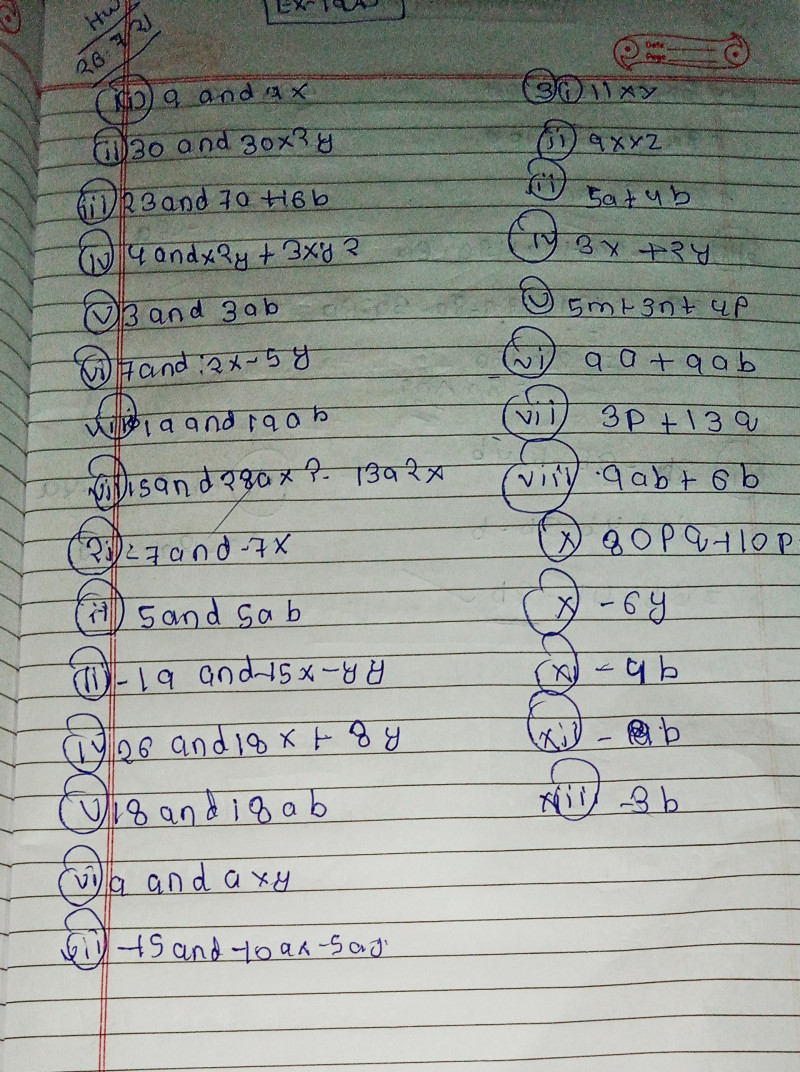 Ex-19(A)
HW
28.7.21
Date
Page
(i) 9 and 9x
(ii) 30 and 30x2y
(iii) 23 and 7a+16b
(iv) 4 and x2y + 3xy2
(v) 3 and 3ab
(vi) 7 and 2x-5y
(vii) 19 and 19ab
(viii) 15 and 28ax2- 13a2x
2(i) -7 and -7x
(ii) 5 and 5ab
(iii) -19
(iv) 26 and 18x + 8y
(v) 18 and 18ab
(vi) a and axy
(vii) -15 and -10ax-5a
3(i) 11xy
(ii) 9xyz
(iii) 5a+4b
(iv) 3x +2y
(v) 5m+3n+4p
(vi) 9a + 9ab
(vii) 3p + 13q
(viii) 9ab + 6b
(x) 80pq+10p
(x) -6y
(xi) -4b
(xii) - b
xiii -3b